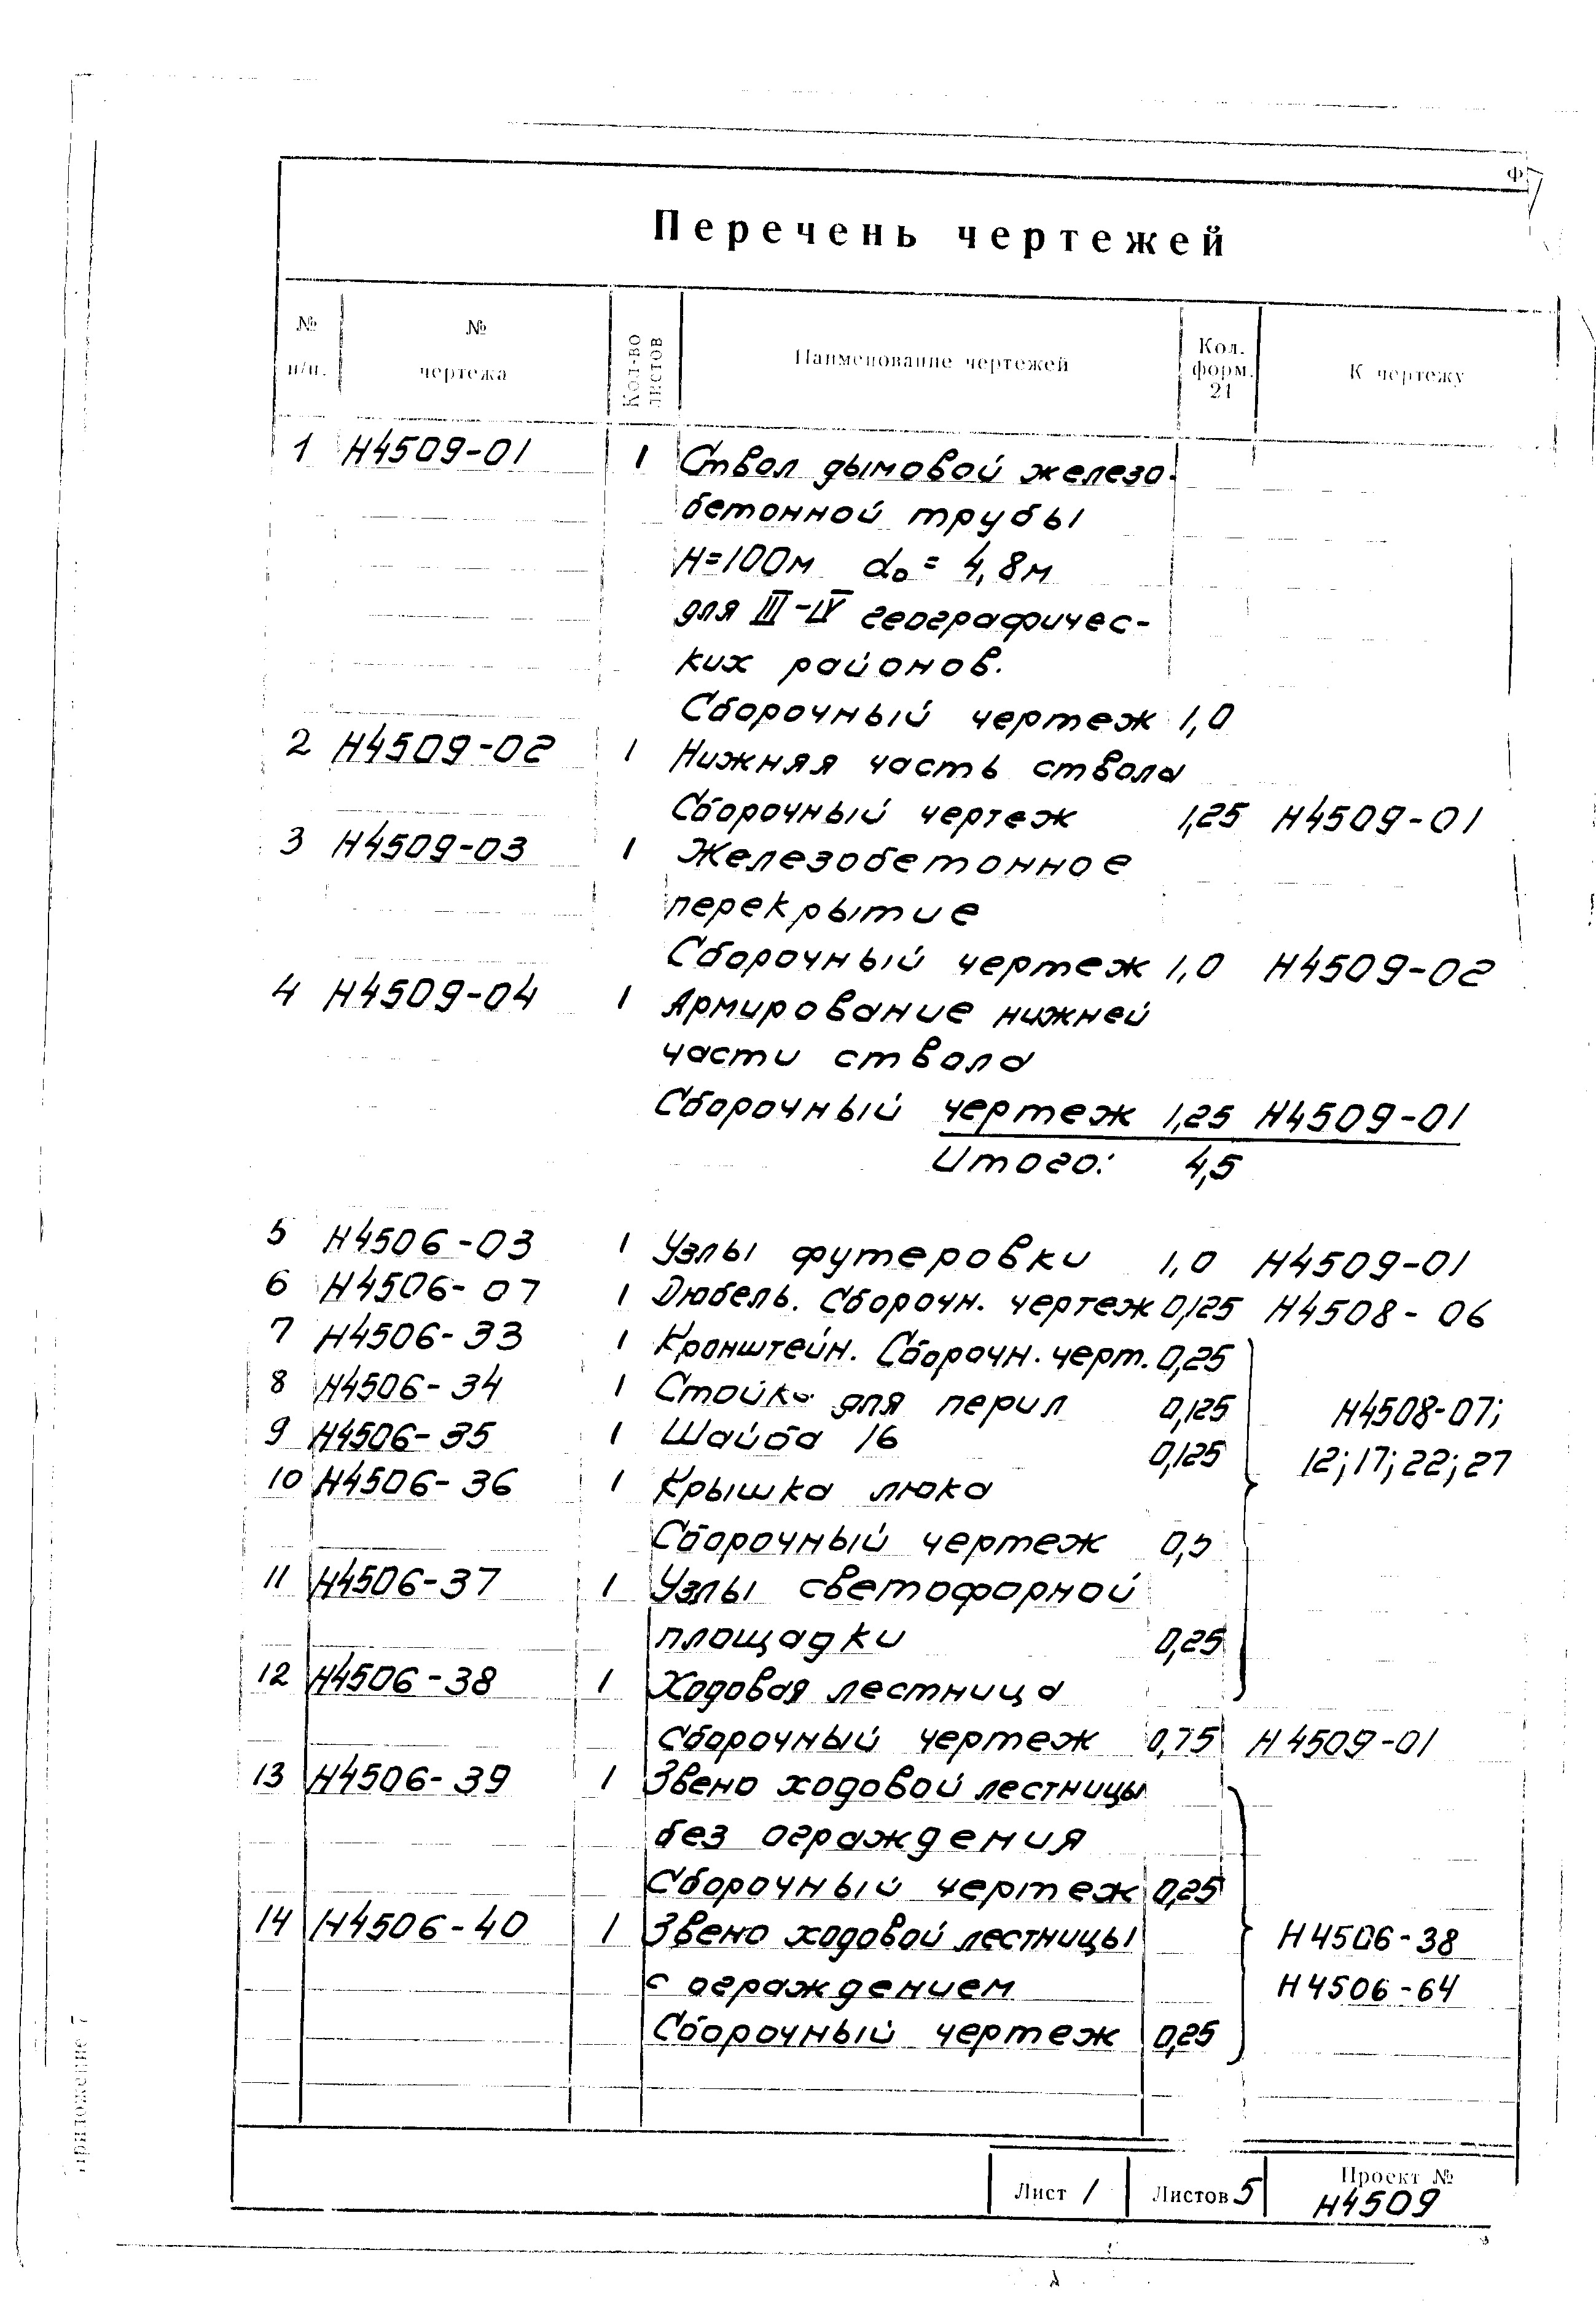 Ф
Перечень чертежей
№ п/п. № чертежа Кол-во листов Наименование чертежей Кол. форм. 21 К чертежу
1 Н4509-01 1 Ствол дымовой железо-
бетонной трубы
Н=100м d₀= 4,8м
для III-IV географичес-
ких районов.
Сборочный чертеж 1,0
2 Н4509-02 1 Нижняя часть ствола
Сборочный чертеж 1,25 Н4509-01
3 Н4509-03 1 Железобетонное
перекрытие
Сборочный чертеж 1,0 Н4509-02
4 Н4509-04 1 Армирование нижней
части ствола
Сборочный чертеж 1,25 Н4509-01
Итого: 4,5
5 Н4506-03 1 Узлы футеровки 1,0 Н4509-01
6 Н4506-07 1 Дюбель. Сборочн. чертеж 0,125 Н4508-06
7 Н4506-33 1 Кронштейн. Сборочн. черт. 0,25
8 Н4506-34 1 Стойка для перил 0,125 Н4508-07;
9 Н4506-35 1 Шайба 16 0,125 12; 17; 22; 27
10 Н4506-36 1 Крышка люка
Сборочный чертеж 0,5
11 Н4506-37 1 Узлы светофорной
площадки 0,25
12 Н4506-38 1 Ходовая лестница
Сборочный чертеж 0,75 Н4509-01
13 Н4506-39 1 Звено ходовой лестницы
без ограждения
Сборочный чертеж 0,25
14 Н4506-40 1 Звено ходовой лестницы Н4506-38
с ограждением Н4506-64
Сборочный чертеж 0,25
Лист 1 Листов 5 Проект №
Н4509